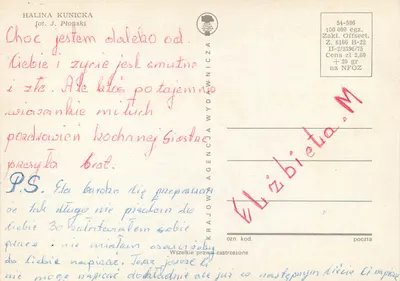 HALINA KUNICKA
(fot. J. Płoński)
Choć jestem daleko od
Ciebie i życie jest smutne
i złe. Ale ktoś potajemnie
wiązankie miłych
pozdrowień kochanej Siostrze
przesyła brat.
P.S. Ela bardzo Cię przepraszam
że tak długo nie pisałam do
Ciebie bo
pracę. nie miałam
do Ciebie napisać. Teraz jeszcze Ci
nie mogę napisać dokładnie ale już w następnym liście Ci
KRAJOWA AGENCJA WYDAWNICZA
54-596
150 000 egz.
Zakł. Offset.
Z. 5160 H-22
Cena zł 2,00
+ 20 gr
na NFOZ
Elżbieta. M
tem kod
poczta
Wszelkie prawa zastrzeżone